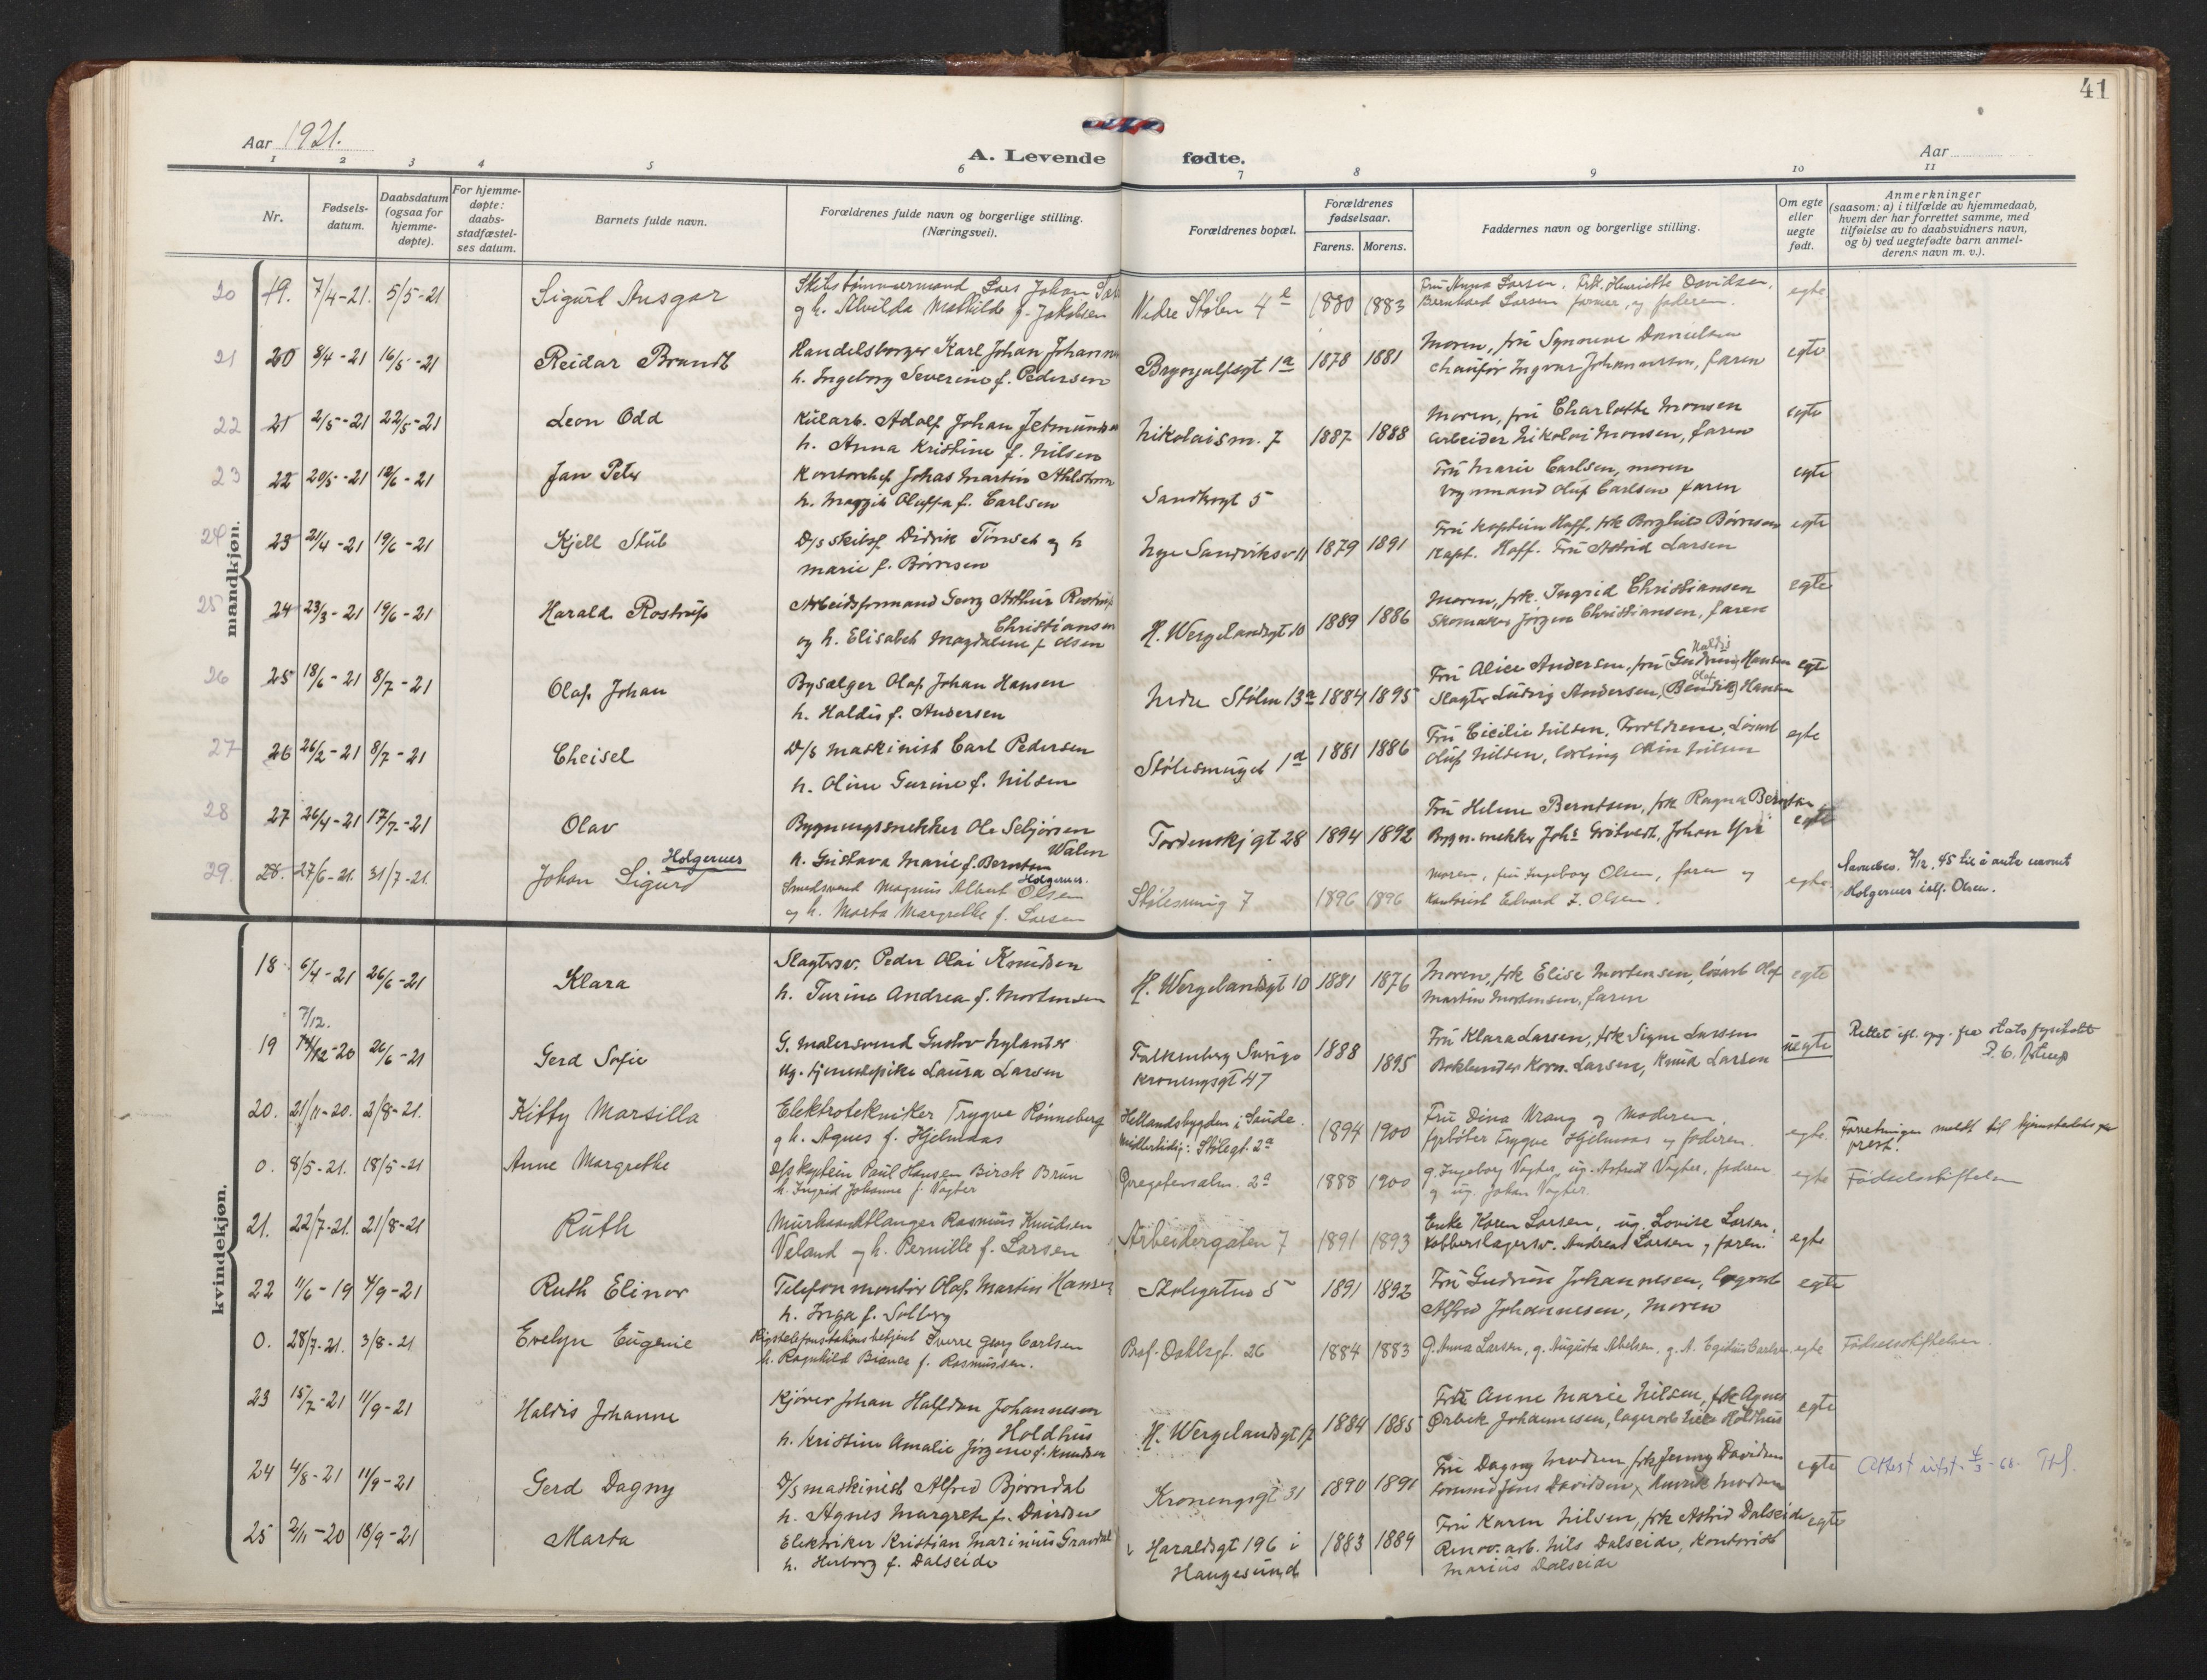 41
Aar 1921.
A. Levende fødte.
Aar
1 2 3 4 5 6 7 8 9 10 11
Nr.
Fødsels-
datum.
Daabsdatum
(ogsaa for
hjemme-
døpte).
For hjemme-
døpte:
daabs-
stadfæstel-
ses datum.
Barnets fulde navn.
Forældrenes fulde navn og borgerlige stilling.
(Næringsvei).
Forældrenes bopæl.
Forældrenes
fødselsaar.
Farens. Morens.
Faddernes navn og borgerlige stilling.
Om egte
eller
uegte
født.
Anmerkninger
(saasom: a) i tilfælde av hjemmedaab,
hvem der har forrettet samme, med
tilføielse av to daabsvidners navn,
og b) ved uegtefødte barn anmel-
derens navn m. v.).
mandkjøn.
20 19. 7/4-21. 5/5-21 Sigurd Ansgar
Skibstømmermand Lars Johan
og h. Alvilda Mathilde f. Jakobsen
Nedre Stølen 4 1880 1883
Fru Anna Larsen, Frk. Henriette Davidsen,
Bernhard Larsen farver, og faderen. egte
21 20 8/4-21 16/5-21 Reidar Brandt
Handelsborger Karl Johan
h. Ingeborg Severine f. Pedersen
Brynjulfsgt 1a 1878 1881
Moren, fru Synnøve Danielsen
chauffør Ingvar Johannessen, faren egte
22 21 2/5-21 22/5-21 Leon Odd
Kularb. Adolf Johan
h. Anna Kristine f. Nilsen
Nikolaism. 7 1887 1888
Moren, fru Charlotte Monsen
arbeider Nikolai Monsen, faren egte
23 22 20/5-21 19/6-21 Jan Peter
Kontorchef Johas Martin Ahlstrøm
h. Maggie Oluffa f. Carlsen
Sandbrogt 5
Fru Marie Carlsen, moren
Oluf Carlsen faren egte
24 23 21/4-21 19/6-21 Kjell Stub
D/s skibsf. Didrik Tønseth og h
Marie f. Børresen
Nye Sandviksv 11 1879 1891
Fru kaptein Hoff, frk Borghild Børresen
Kapt. Hoff. Fru Astrid Larsen egte
25 24 23/3-21 19/6-21 Harald Rostrup
Arbeidsformand Georg Arthur Rostrup
Christiansen
og h. Elisabeth Magdalene f Olsen
H. Wergelandsgt 10 1889 1886
Moren, frk. Ingrid Christiansen
Skomaker Jørgen Christiansen, faren egte
26 25 18/6-21 8/7-21 Olaf Johan
Bysælger Olaf Johan Hansen
h. Haldis f. Andersen
Nedre Stølen 13a 1884 1895
Haldis
Fru Alice Andersen, fru (Gudrun) Hansen egte
Olaf
Slagter Ludvig Andersen, (Bendik) Hansen
27 26 26/2-21 8/7-21 Cheisel
D/s maskinist Carl Pedersen
h. Oline Gurine f. Nilsen
Stølesmuget 1a 1881 1886
Fru Cicilie Nilsen,
Oluf Nilsen, lærling Odin Nilsen egte
28 27 26/4-21 17/7-21 Olav
Bygningssnekker Ole Sebjørsen
Walen
h. Gustava Marie f. Berntsen
Tordenskj gt 28 1894 1892
Fru Helene Berntsen, frk Ragna Berntsen
Bygn. snekker Johs Grøtvedt, Johan egte
29. 28. 27/6-21. 31/7-21. Johan Sigurd Holgernes
Holgernes.
Smedsvend Magnus Albert Olsen
og h. Marta Margrethe f. Larsen
Stølesmug 7 1896 1896
moren, fru Ingeborg Olsen, faren og
kontorist Edvard Z. Olsen. egte
Navnbev. 7/12.45 til å anta navnet
Holgernes istf. Olsen.
kvindekjøn.
18 6/4-21 26/6-21 Klara
Slagtersv. Peder Olai Knudsen
h. Turine Andrea f. Mortensen
H. Wergelandsgt 10 1881 1876
Moren, frk Elise Mortensen, løsarb Olaf
Martin Mortensen, faren egte
7/12.
19 14/12-20 26/6-21 Gerd Sofie
G. malersvend Gustav Nylander
ug. tjenestepike Laura Larsen
Falkenberg Sverige 1888
Kronengsgt 47 1895
Fru Klara Larsen, frk Signe Larsen
Bokbinder Korn. Larsen, Knud Larsen uegte
Rettet ifl. opg. fra stats fysikat
20. 21/11-20. 2/8-21. Kitty Marsilla
Elektrotekniker Trygve Rønneberg
og h. Agnes f. Hjelmaas
Hellandsbygden i Saude.
midlertidig: Stølegt. 2a 1894 1900
Fru Dina Vrang og Moderen,
fyrbøter Trygve Hjelmaas og faderen. egte.
Forretningen meldt til hjemstedets
prest.
0. 8/5-21. 18/5-21 Anne Margrethe
D/s kaptein Paul Hansen Birck Brun
h. Ingrid Johanne f. Vogter
2a 1888 1900
g. Ingeborg Vogter, ug. Astrid Vogter, faderen
og ug. Johan Vogter. egte Fødselsstiftelsen
21. 22/7-21. 21/8-21 Ruth
Murhaandtlanger Rasmus Knudsen
Veland og h. Pernille f. Larsen
Arbeidergaten 7 1891 1893
Enke Karen Larsen, ug. Lovise Larsen,
Kobberslagersv. Andreas Larsen og faren. egte
22 11/6-19 4/9-21 Ruth Elinor
Telefonmontør Olaf Martin Hansen
h. Inga f. Solberg
Stølegaten 5 1891 1892
Fru Gudrun Johannesen,
Alfred Johannesen, Moren egte
0. 28/7-21. 3/8-21 Evelyn Eugenie
Rigstelefonstationsbetjent Sverre Georg Carlsen
h. Ragnhild Bianca f. Rasmussen.
Prof. Dahlsgt. 26 1884 1883
g. Anna Larsen, g. Augusta Abelsen, g. A. Egidius Carlsen egte Fødselsstiftelsen.
23 15/7-21 11/9-21 Haldis Johanne
Kjører Johan Halfdan Johannesen
Holdhus
h. Kristine Amalie Jørgine f. Knudsen
H. Wergelandsgt 12 1884 1885
Fru Anne Marie Nilsen, frk Agnes
Ørbek Johannesen, lagerarb Nils Holdhus egte
24 4/8-21 11/9-21 Gerd Dagny
D/s maskinist Alfred Bjørndal
h. Agnes Margreth f. Davidsen
Kronengsgt 31 1890 1891
Fru Dagny Madsen, frk Jenny Davidsen
formand Jens Davidsen, Henrik Madsen egte
Attest utst. 4/3-68.
25 2/11-20 18/9-21 Marta
Elektriker Kristian Marinius Gravdal
h. Herborg f. Dalseide
Haraldsgt 196 i
Haugesund 1883 1884
Fru Karen Nilsen, frk Astrid Dalseide egte
Renov. arb. Nils Dalseide, Kontorist
Marius Dalseide